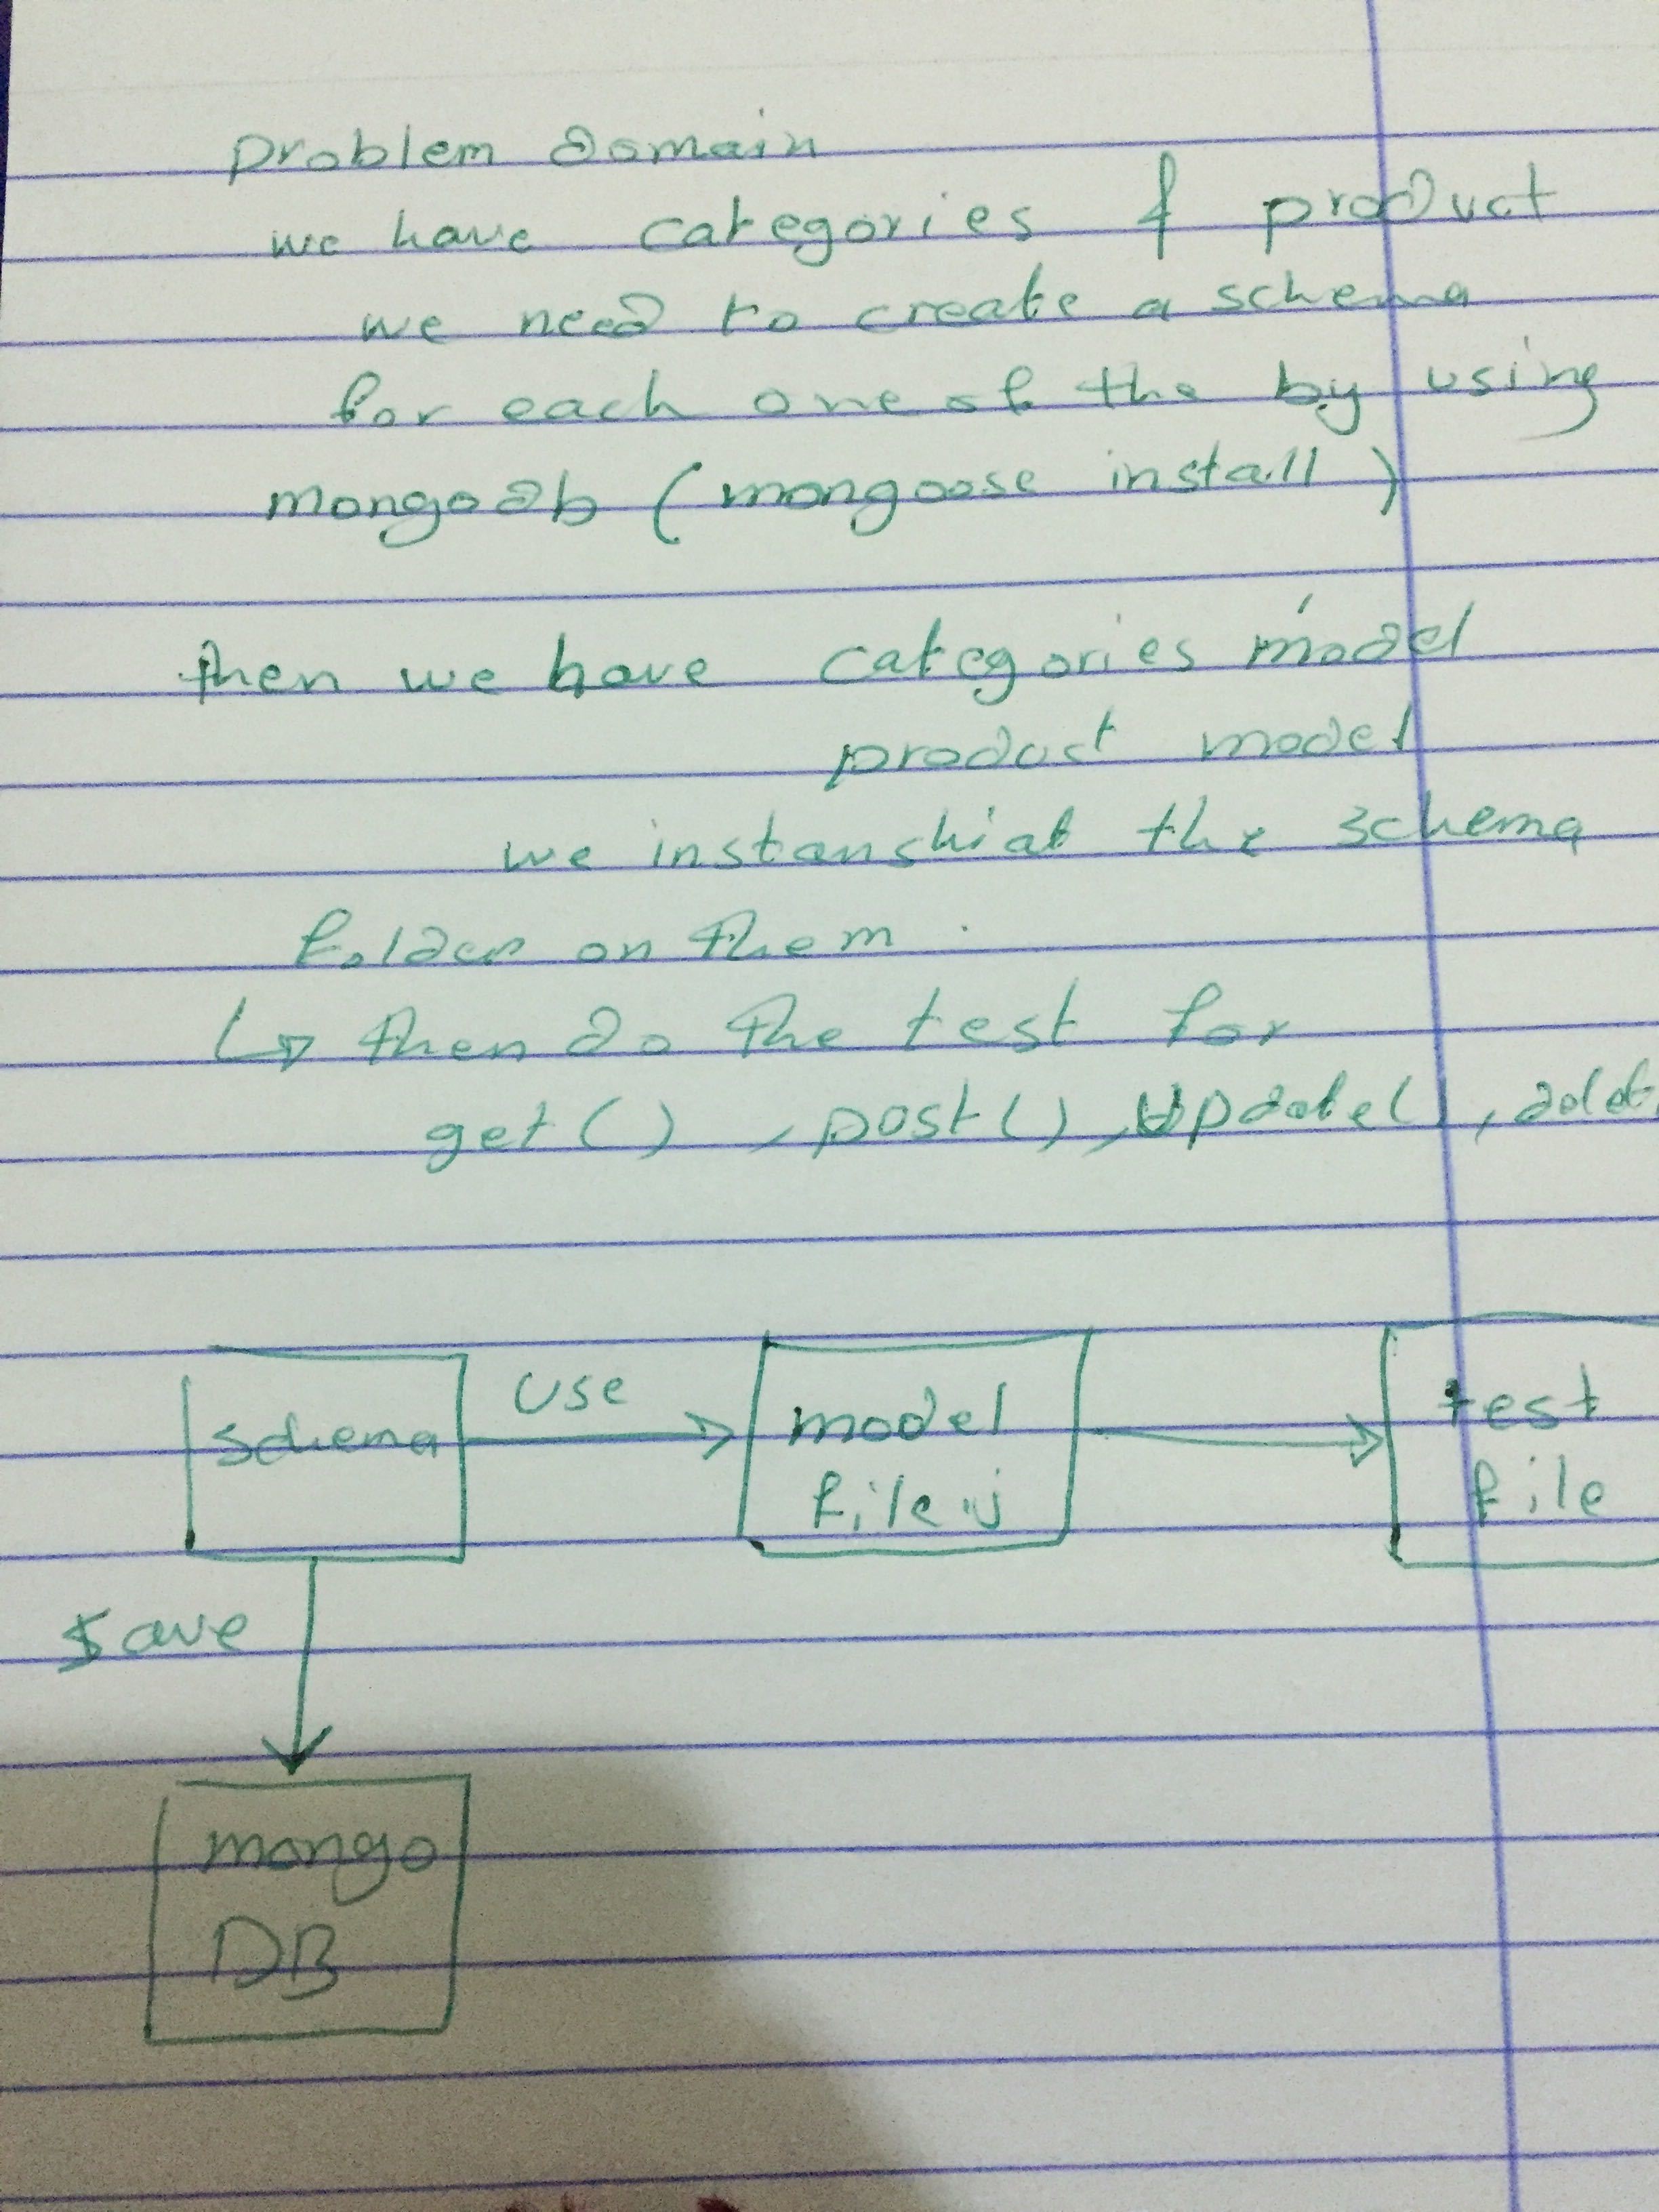 problem domain
we have categories & product
we need to create a schema
for each one of the by using
mongodb (mongoose install)
then we have categories model
product model
we instanshiat the schema
folder on them.
then do the test for
get() , post() , Update() , delet
schema
use
model
file
test
file
save
mongo
DB